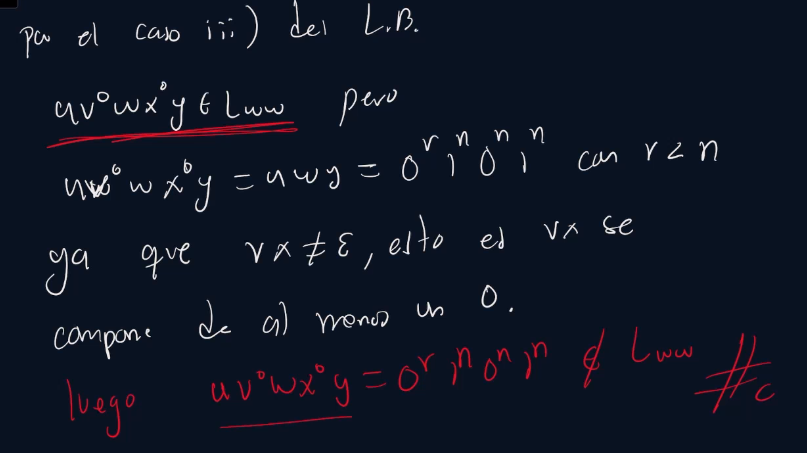 por el caso iii) del L.B.
uv⁰wx⁰y ∈ Lww pero
uv⁰wx⁰y = uwy = 0ʳ1ⁿ0ⁿ1ⁿ con r < n
ya que vx ≠ ε, esto es vx se
compone de al menos un 0.
luego uv⁰wx⁰y = 0ʳ1ⁿ0ⁿ1ⁿ ∉ Lww #c